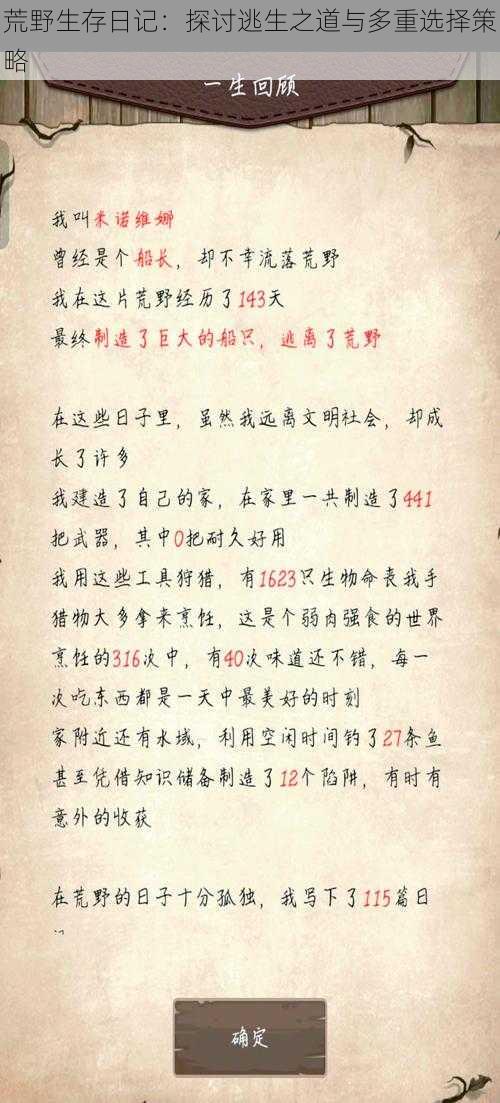 荒野生存日记：探讨逃生之道与多重选择策
略
一生回顾
我叫米诺维娜
曾经是个船长，却不幸流落荒野
我在这片荒野经历了143天
最终制造了巨大的船只，逃离了荒野
在这些日子里，虽然我远离文明社会，却成
长了许多
我建造了自己的家，在家里一共制造了441
把武器，其中0把耐久好用
我用这些工具狩猎，有1623只生物命丧我手
猎物大多拿来烹饪，这是个弱肉强食的世界
烹饪的316次中，有40次味道还不错，每一
次吃东西都是一天中最美好的时刻
家附近还有水域，利用空闲时间钓了27条鱼
甚至凭借知识储备制造了12个陷阱，有时有
意外的收获
在荒野的日子十分孤独，我写下了115篇日
确定